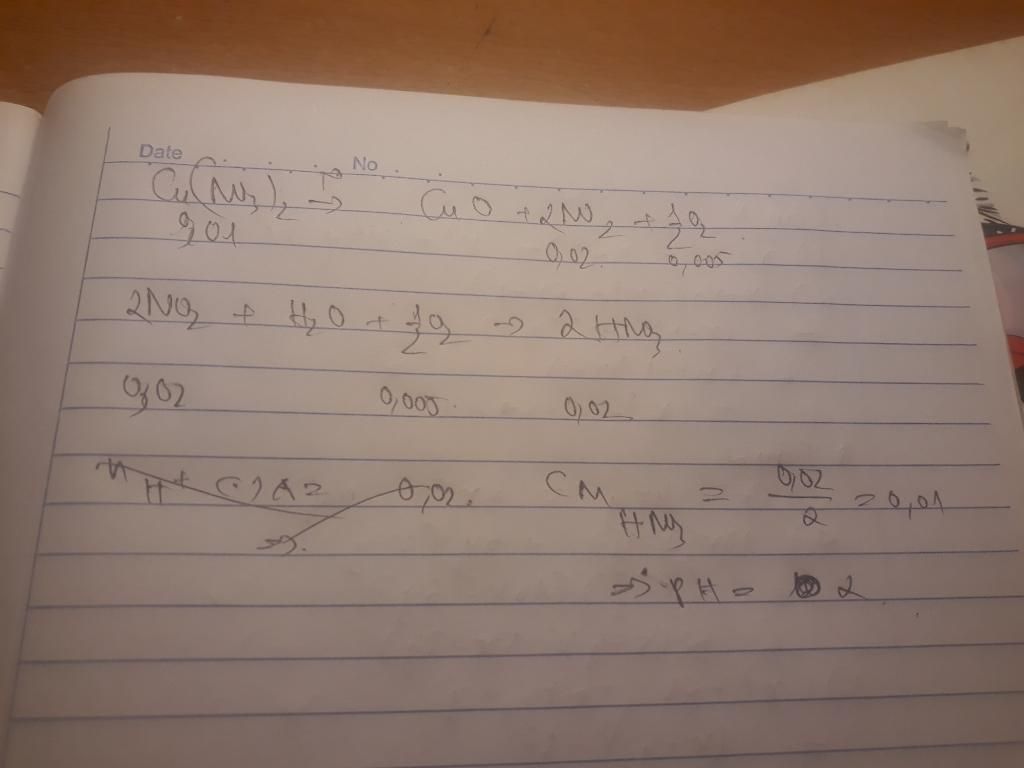 Date No
Cu(NO3)2 → CuO + 2NO2 + 1/2 O2
0,01 0,02 0,005
2NO2 + H2O + 1/2 O2 → 2HNO3
0,02 0,005 0,02
CM HNO3 = 0,02/2 = 0,01
⇒ pH = 2